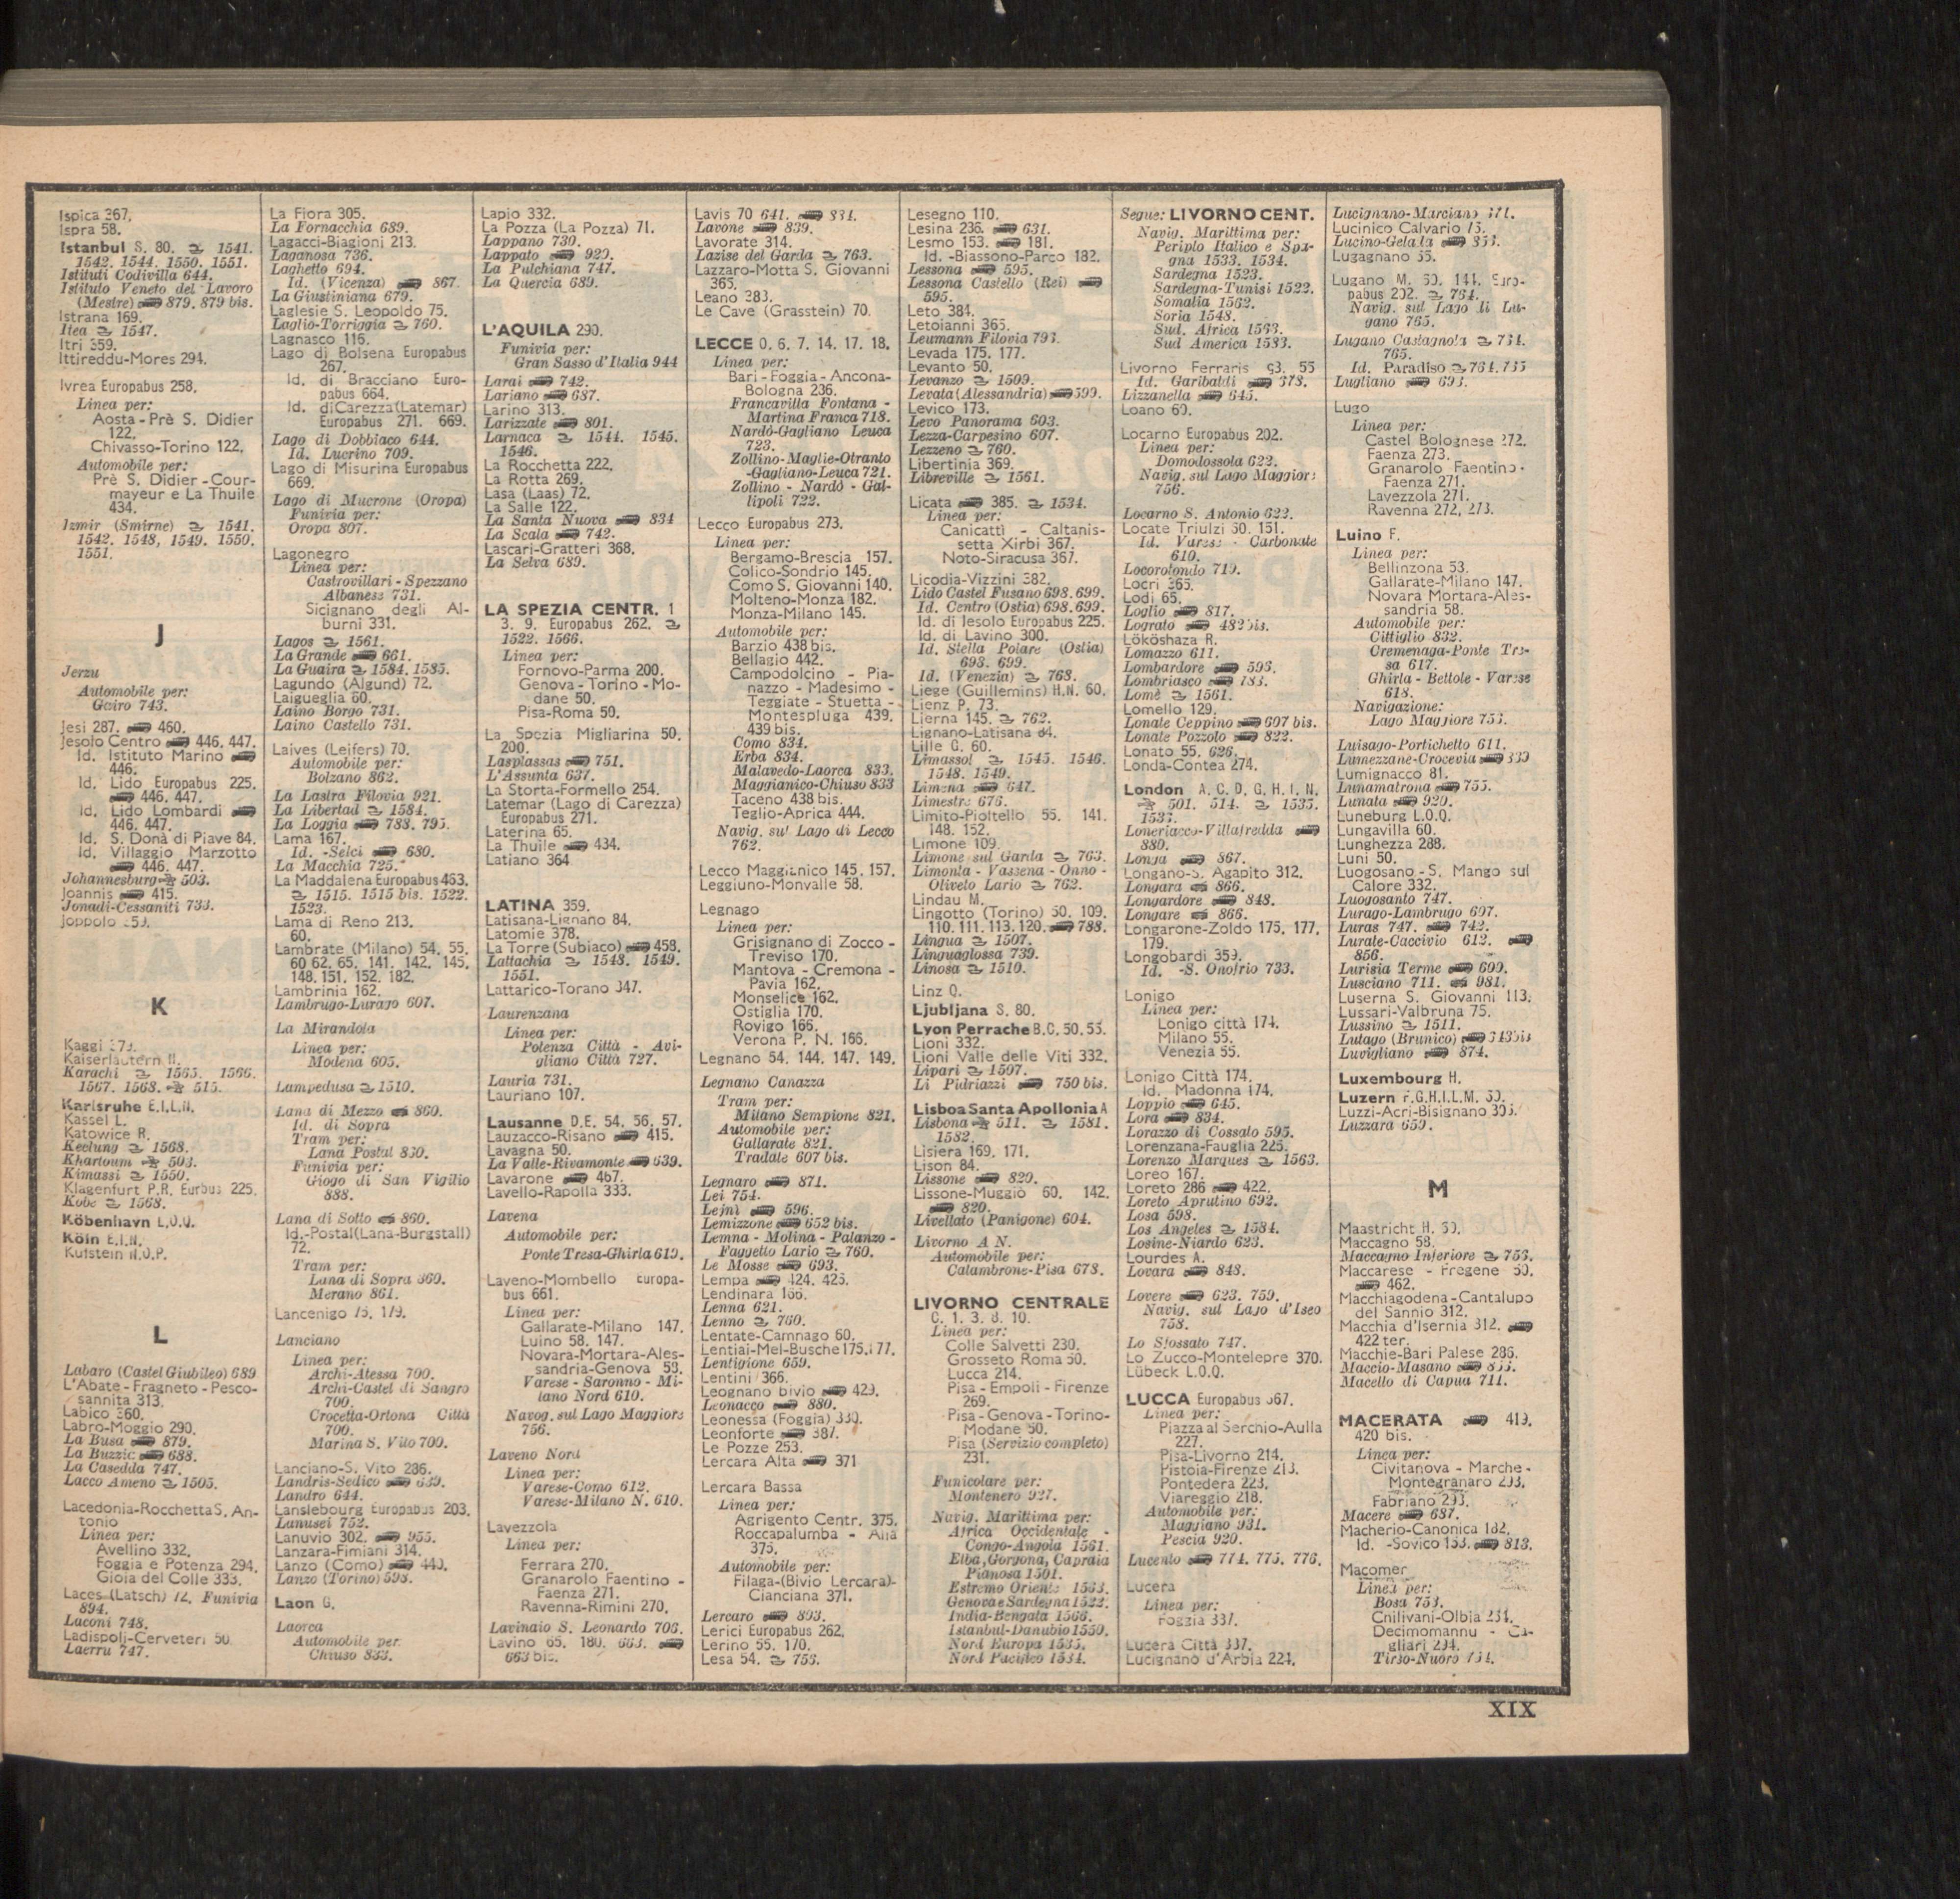 Ispica 267.
Ispra 58.
Istanbul S. 80. 1541.
1542. 1544. 1550. 1551.
Istituti Codivilla 644.
Istituto Veneto del Lavoro
(Mestre) 879. 879 bis.
Istrana 169.
Itea 1547.
Itri 359.
Ittireddu-Mores 294.
Ivrea Europabus 258.
Linea per:
Aosta - Prè S. Didier
122.
Chivasso-Torino 122.
Automobile per:
Prè S. Didier - Cour-
mayeur e La Thuile
434.
Izmir (Smirne) 1541.
1542. 1548, 1549. 1550.
1551.
J
Jerzu
Automobile per:
Gairo 743.
Jesi 287. 460.
Jesolo Centro 446. 447.
Id. Istituto Marino
446.
Id. Lido Europabus 225.
446. 447.
Id. Lido Lombardi
446. 447.
Id. S. Donà di Piave 84.
Id. Villaggio Marzotto
446. 447.
Johannesburg 503.
Joannis 415.
Jonadi-Cessaniti 733.
Joppolo
K
Kaggi
Kaiserlautern
Karachi 1565. 1566.
1567. 1568. 515.
Karlsruhe E.I.L.N.
Kassel L.
Katowice R.
Keelung 1568.
Khartoum 503.
Kimassi 1550.
Klagenfurt P.R. Eurbus 225.
Kobe 1568.
Köbenhavn L.O.Q.
Köln E.I.N.
Kufstein N.O.P.
L
Labaro (Castel Giubileo) 689
L'Abate - Fragneto - Pesco-
sannita 313.
Labico 360.
Labro-Moggio 290.
La Busa 879.
La Buzzic 688.
La Casedda 747.
Lacco Ameno 1505.
Lacedonia-Rocchetta S. An-
tonio
Linea per:
Avellino 332.
Foggia e Potenza 294.
Gioia del Colle 333.
Laces (Latsch) 72. Funivia
894.
Laconi 748.
Ladispoli-Cerveteri 50.
Laerru 747.
La Fiora 305.
La Fornacchia 689.
Lagacci-Biagioni 213.
Laganosa 736.
Laghetto 694.
Id. (Vicenza) 867.
La Giustiniana 679.
Laglesie S. Leopoldo 75.
Laglio-Torriggia 760.
Lagnasco 116.
Lago di Bolsena Europabus
267.
Id. di Bracciano Euro-
pabus 664.
Id. di Carezza (Latemar)
Europabus 271. 669.
Lago di Dobbiaco 644.
Id. Lucrino 709.
Lago di Misurina Europabus
669.
Lago di Mucrone (Oropa)
Funivia per:
Oropa 807.
Lagonegro
Linea per:
Castrovillari - Spezzano
Albanese 731.
Sicignano degli Al-
burni 331.
Lagos 1561.
La Grande 661.
La Guaira 1584. 1585.
Lagundo (Algund) 72.
Laigueglia 60.
Laino Borgo 731.
Laino Castello 731.
Laives (Leifers) 70.
Automobile per:
Bolzano 862.
La Lastra Filovia 921.
La Libertad 1584.
La Loggia 783. 795.
Lama 167.
Id. -Selci 680.
La Macchia 725.
La Maddalena Europabus 463.
1515. 1515 bis. 1522.
1523.
Lama di Reno 213.
60.
Lambrate (Milano) 54. 55.
60 62. 65. 141. 142. 145.
148. 151. 152. 182.
Lambrinia 162.
Lambrugo-Lurago 607.
La Mirandola
Linea per:
Modena 605.
Lampedusa 1510.
Lana di Mezzo 860.
Id. di Sopra
Tram per:
Lana Postal 860.
Funivia per:
Giogo di San Vigilio
888.
Lana di Sotto 860.
Id.-Postal (Lana-Burgstall)
72.
Tram per:
Lana di Sopra 860.
Merano 861.
Lancenigo 75. 179.
Lanciano
Linea per:
Archi-Atessa 700.
Archi-Castel di Sangro
700.
Crocetta-Ortona Città
700.
Marina S. Vito 700.
Lanciano-S. Vito 286.
Landris-Sedico 639.
Landro 644.
Lanslebourg Europabus 203.
Lanusei 752.
Lanuvio 302. 955.
Lanzara-Fimiani 314.
Lanzo (Como) 440.
Lanzo (Torino) 598.
Laon G.
Laorca
Automobile per
Chiuso 833.
Lapio 332.
La Pozza (La Pozza) 71.
Lappano 730.
Lappato 920.
La Pulchiana 747.
La Quercia 689.
L'AQUILA 290.
Funivia per:
Gran Sasso d'Italia 944
Larai 742.
Lariano 687.
Larino 313.
Larizzate 801.
Larnaca 1544. 1545.
1546.
La Rocchetta 222.
La Rotta 269.
Lasa (Laas) 72.
La Salle 122.
La Santa Nuova 834
La Scala 742.
Lascari-Gratteri 368.
La Selva 689.
LA SPEZIA CENTR. 1
3. 9. Europabus 262.
1522. 1566.
Linea per:
Fornovo-Parma 200.
Genova - Torino - Mo-
dane 50.
Pisa-Roma 50.
La Spezia Migliarina 50.
200.
Lasplassas 751.
L'Assunta 637.
La Storta-Formello 254.
Latemar (Lago di Carezza)
Europabus 271.
Laterina 65.
La Thuile 434.
Latiano 364
LATINA 359.
Latisana-Lignano 84.
Latomie 378.
La Torre (Subiaco) 458.
Lattachia 1548. 1549.
1551.
Lattarico-Torano 347.
Laurenzana
Linea per:
Potenza Città - Avi-
gliano Città 727.
Lauria 731.
Lauriano 107.
Lausanne D.E. 54. 56. 57.
Lauzacco-Risano 415.
Lavagna 50.
La Valle-Rivamonte 639.
Lavarone 467.
Lavello-Rapolla 333.
Lavena
Automobile per:
Ponte Tresa-Ghirla 619.
Laveno-Mombello Europa-
bus 661.
Linea per:
Gallarate-Milano 147.
Luino 58. 147.
Novara-Mortara-Ales-
sandria-Genova 58.
Varese - Saronno - Mi-
lano Nord 610.
Navog. sul Lago Maggiore
756.
Laveno Nord
Linea per:
Varese-Como 612.
Varese-Milano N. 610.
Lavezzola
Linea per:
Ferrara 270.
Granarolo Faentino -
Faenza 271.
Ravenna-Rimini 270.
Lavinaio S. Leonardo 706.
Lavino 65. 180. 663.
663 bis.
Lavis 70 641. 834.
Lavone 839.
Lavorate 314.
Lazise del Garda 763.
Lazzaro-Motta S. Giovanni
365.
Leano 283.
Le Cave (Grasstein) 70.
LECCE 0. 6. 7. 14. 17. 18.
Linea per:
Bari - Foggia - Ancona-
Bologna 236.
Francavilla Fontana -
Martina Franca 718.
Nardò-Gagliano Leuca
723.
Zollino-Maglie-Otranto
-Gagliano-Leuca 721.
Zollino - Nardò - Gal-
lipoli 722.
Lecco Europabus 273.
Linea per:
Bergamo-Brescia 157.
Colico-Sondrio 145.
Como S. Giovanni 140.
Molteno-Monza 182.
Monza-Milano 145.
Automobile per:
Barzio 438 bis.
Bellagio 442.
Campodolcino - Pia-
nazzo - Madesimo -
Teggiate - Stuetta -
Montespluga 439.
439 bis.
Como 834.
Erba 834.
Malavedo-Laorca 833.
Maggianico-Chiuso 833
Taceno 438 bis.
Teglio-Aprica 444.
Navig. sul Lago di Lecco
762.
Lecco Maggianico 145. 157.
Leggiuno-Monvalle 58.
Legnago
Linea per:
Grisignano di Zocco -
Treviso 170.
Mantova - Cremona -
Pavia 162.
Monselice 162.
Ostiglia 170.
Rovigo 166.
Verona P. N. 166.
Legnano 54. 144. 147. 149.
Legnano Canazza
Tram per:
Milano Sempione 821.
Automobile per:
Gallarate 821.
Tradate 607 bis.
Legnaro 871.
Lei 754.
Lejnì 596.
Lemizzone 652 bis.
Lemna - Molina - Palanzo -
Faggetto Lario 760.
Le Mosse 693.
Lempa 424. 425.
Lendinara 166.
Lenna 621.
Lenno 760.
Lentate-Camnago 60.
Lentiai-Mel-Busche 175.177.
Lentigione 659.
Lentini 366.
Leognano bivio 429.
Leonacco 880.
Leonessa (Foggia) 330.
Leonforte 387.
Le Pozze 253.
Lercara Alta 371
Lercara Bassa
Linea per:
Agrigento Centr. 375.
Roccapalumba - Alia
375.
Automobile per:
Filaga-(Bivio Lercara)-
Cianciana 371.
Lercaro 803.
Lerici Europabus 262.
Lerino 55. 170.
Lesa 54. 756.
Lesegno 110.
Lesina 236. 631.
Lesmo 153. 181.
Id. -Biassono-Parco 182.
Lessona 595.
Lessona Castello (Rei)
595.
Leto 384.
Letoianni 365.
Leumann Filovia 793.
Levada 175. 177.
Levanto 50.
Levanzo 1509.
Levata (Alessandria) 599.
Levico 173.
Levo Panorama 603.
Lezza-Carpesino 607.
Lezzeno 760.
Libertinia 369.
Libreville 1561.
Licata 385. 1534.
Linea per:
Canicattì - Caltanis-
setta Xirbi 367.
Noto-Siracusa 367.
Licodia-Vizzini 382.
Lido Castel Fusano 698. 699.
Id. Centro (Ostia) 698. 699.
Id. di Iesolo Europabus 225.
Id. di Lavino 300.
Id. Stella Polare (Ostia)
698. 699.
Id. (Venezia) 768.
Liege (Guillemins) H.N. 60.
Lienz P. 73.
Lierna 145. 762.
Lignano-Latisana 84.
Lille G. 60.
Limassol 1545. 1546.
1548. 1549.
Limena 647.
Limestre 676.
Limito-Pioltello 55. 141.
148. 152.
Limone 109.
Limone sul Garda 763.
Limonta - Vassena - Onno -
Oliveto Lario 762.
Lindau M.
Lingotto (Torino) 50. 109.
110. 111. 113. 120. 788.
Lingua 1507.
Linguaglossa 739.
Linosa 1510.
Linz Q.
Ljubljana S. 80.
Lyon Perrache B.C. 50. 55.
Lioni 332.
Lioni Valle delle Viti 332.
Lipari 1507.
Li Pidriazzi 750 bis.
Lisboa Santa Apollonia A
Lisbona 511. 1581.
1582.
Lisiera 169. 171.
Lison 84.
Lissone 820.
Lissone-Muggiò 60. 142.
820.
Livellato (Panigone) 604.
Livorno A N.
Automobile per:
Calambrone-Pisa 678.
LIVORNO CENTRALE
C. 1. 3. 8. 10.
Linea per:
Colle Salvetti 230.
Grosseto Roma 50.
Lucca 214.
Pisa - Empoli - Firenze
269.
Pisa - Genova - Torino-
Modane 50.
Pisa (Servizio completo)
231.
Funicolare per:
Montenero 927.
Navig. Marittima per:
Africa Occidentale -
Congo-Angola 1561.
Elba, Gorgona, Capraia
Pianosa 1501.
Estremo Oriente 1563.
Genova e Sardegna 1522.
India-Bengala 1566.
Istanbul-Danubio 1550.
Nord Europa 1535.
Nord Pacifico 1584.
Segue: LIVORNO CENT.
Navig. Marittima per:
Periplo Italico e Spa-
gna 1533. 1534.
Sardegna 1523.
Sardegna-Tunisi 1522.
Somalia 1562.
Soria 1548.
Sud. Africa 1563.
Sud America 1583.
Livorno Ferraris 93. 55
Id. Garibaldi 678.
Lizzanella 645.
Loano 60.
Locarno Europabus 202.
Linea per:
Domodossola 622.
Navig. sul Lago Maggiore
756.
Locarno S. Antonio 622.
Locate Triulzi 50. 151.
Id. Varese - Carbonate
610.
Locorotondo 719.
Locri 365.
Lodi 65.
Loglio 817.
Lograto 482 bis.
Lököshaza R.
Lomazzo 611.
Lombardore 596.
Lombriasco 783.
Lomè 1561.
Lomello 129.
Lonate Ceppino 607 bis.
Lonate Pozzolo 822.
Lonato 55. 626.
Londa-Contea 274.
London A. C. D. G. H. I. N.
501. 514. 1535.
1536.
Loneriacco-Villafredda
880.
Longa 867.
Longano-S. Agapito 312.
Longara 866.
Longardore 848.
Longare 866.
Longarone-Zoldo 175. 177.
179.
Longobardi 359.
Id. -S. Onofrio 733.
Lonigo
Linea per:
Lonigo città 174.
Milano 55.
Venezia 55.
Lonigo Città 174.
Id. Madonna 174.
Loppio 645.
Lora 834.
Lorazzo di Cossato 595.
Lorenzana-Fauglia 225.
Lorenzo Marques 1563.
Loreo 167.
Loreto 286 422.
Loreto Aprutino 692.
Losa 598.
Los Angeles 1584.
Losine-Niardo 623.
Lourdes A.
Lovara 848.
Lovere 623. 759.
Navig. sul Lago d'Iseo
758.
Lo Sfossato 747.
Lo Zucco-Montelepre 370.
Lübeck L.O.Q.
LUCCA Europabus 667.
Linea per:
Piazza al Serchio-Aulla
227.
Pisa-Livorno 214.
Pistoia-Firenze 213.
Pontedera 223.
Viareggio 218.
Automobile per:
Maggiano 931.
Pescia 920.
Lucento 774. 775. 776.
Lucera
Linea per:
Foggia 337.
Lucera Città 337.
Lucignano d'Arbia 224.
Lucignano-Marciano 671.
Lucinico Calvario 75.
Lucino-Gelata
Lugagnano 55.
Lugano M. 50. 141. Euro-
pabus 202. 764.
Navig. sul Lago di Lu-
gano 765.
Lugano Castagnola 764.
765.
Id. Paradiso 764. 765
Lugliano 693.
Lugo
Linea per:
Castel Bolognese 272.
Faenza 273.
Granarolo Faentino -
Faenza 271.
Lavezzola 271.
Ravenna 272, 273.
Luino F.
Linea per:
Bellinzona 53.
Gallarate-Milano 147.
Novara Mortara-Ales-
sandria 58.
Automobile per:
Cittiglio 832.
Cremenaga-Ponte Tre-
sa 617.
Ghirla - Bettole - Varese
618.
Navigazione:
Lago Maggiore 756.
Luisago-Portichetto 611.
Lumezzane-Crocevia 839
Lumignacco 81.
Lunamatrona 755.
Lunata 920.
Luneburg L.O.Q.
Lungavilla 60.
Lunghezza 288.
Luni 50.
Luogosano - S. Mango sul
Calore 332.
Luogosanto 747.
Lurago-Lambrugo 607.
Luras 747. 742.
Lurate-Caccivio 612.
856.
Lurisia Terme 609.
Lusciano 711. 981.
Luserna S. Giovanni 113.
Lussari-Valbruna 75.
Lussino 1511.
Lutago (Brunico) 643 bis
Luvigliano 874.
Luxembourg H.
Luzern F.G.H.I.L.M. 53.
Luzzi-Acri-Bisignano 393.
Luzzara 659.
M
Maastricht H. 60.
Maccagno 58.
Maccagno Inferiore 756.
Maccarese - Fregene 50.
462.
Macchiagodena - Cantalupo
del Sannio 312.
Macchia d'Isernia 312.
422 ter.
Macchie-Bari Palese 286.
Maccio-Masano
Macello di Capua 711.
MACERATA 419.
420 bis.
Linea per:
Civitanova - Marche -
Montegranaro 293.
Fabriano 293.
Macere 687.
Macherio-Canonica 182.
Id. -Sovico 153. 818.
Macomer
Linea per:
Bosa 753.
Cnilivani-Olbia 294.
Decimomannu - Ca-
gliari 294.
Tirso-Nuoro 754.
XIX